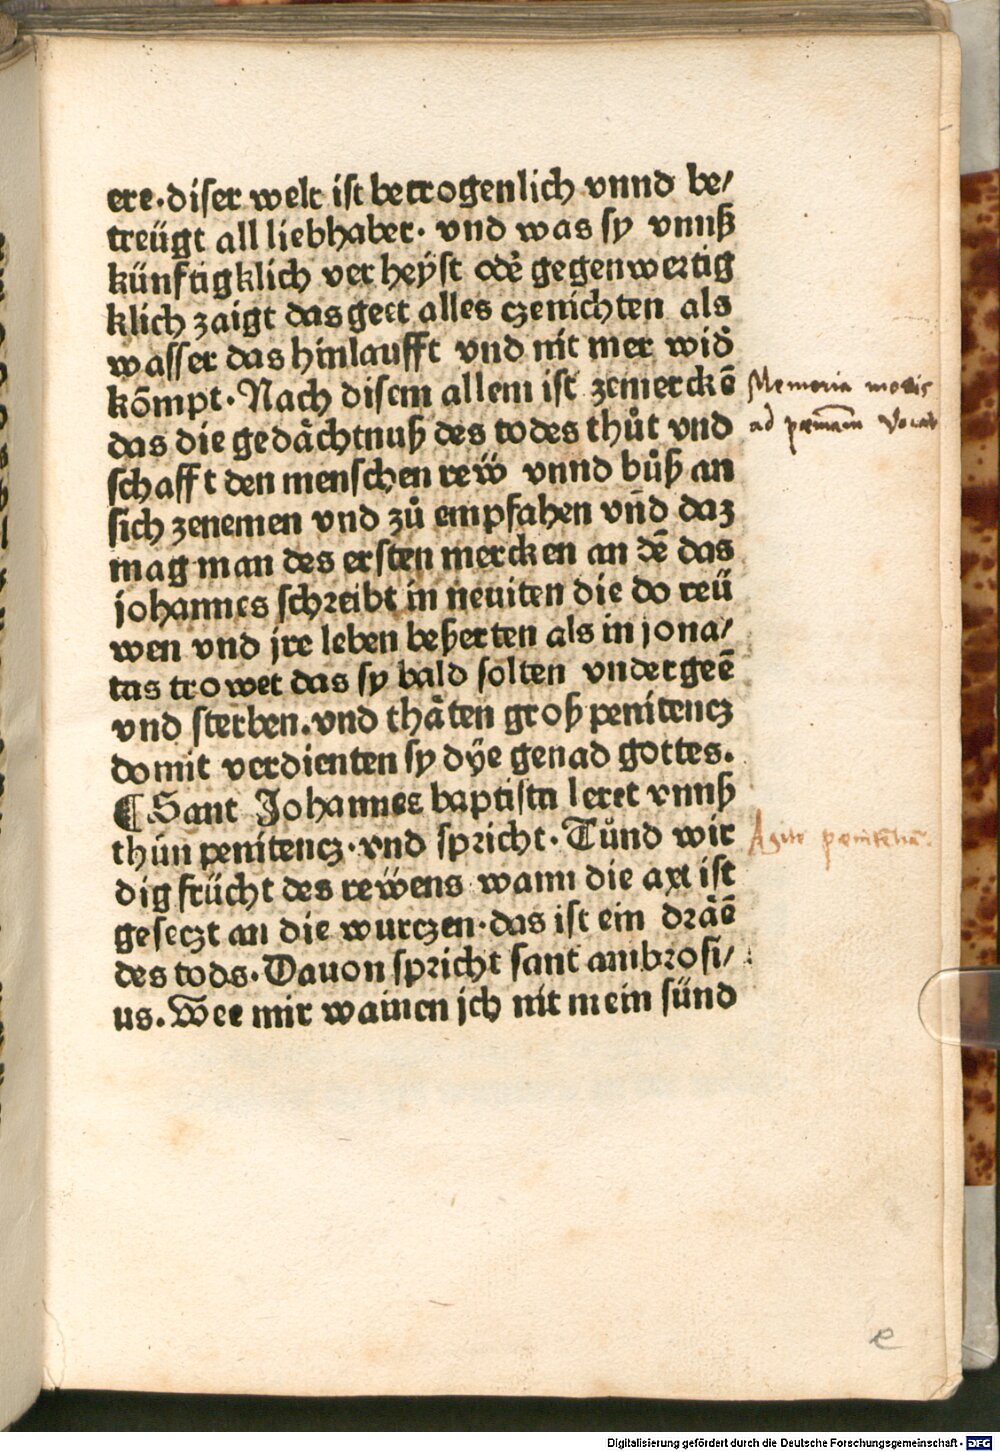 ere. diser welt ist betrogenlich vnnd be/
treügt all liebhaber. vnd was sy vnnß
künfftigklich verheÿst odẽ gegenwertig
klich zaigt das geet alles czenichten als
wasser das hinlaufft vnd nit mer widẽ
kõmpt. Nach disem allem ist zemerckẽ
das die gedåchtnuß des todes thůt vnd
schafft den menschen reẅ vnnd bůß an
sich zenemen vnd zů empfahen vñd daz
mag man des ersten mercken an dẽ das
johannes schreibt in neuiten die do reü
wen vnd jre leben beßerten als in jona/
tas trowet das sy bald solten vndergeẽ
vnd sterben. vnd thåten groß penitencz
domit verdienten sy dÿe genad gottes.
¶ Sant Johannes baptista leret vnnß
thůn penitencz. vnd spricht. Tůnd wir
dig frücht des reẅens wann die axt ist
geseczt an die wurczen. das ist ein dråẽ
des tods. Dauon spricht sant ambrosi/
us. Wee mir wainen jch nit mein sünd
Memoria mortis
ad pœnitentiam vocat
Agite pœnitentiã.
e
Digitalisierung gefördert durch die Deutsche Forschungsgemeinschaft - DFG